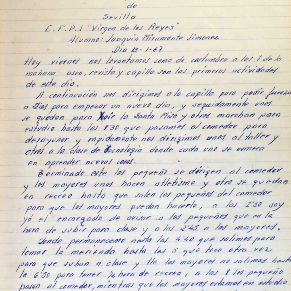 de
Sevilla
E.F.P.I. "Virgen de los Reyes"
Alumno: Joaquín Miramonte Jimenez
Dia 13-1-67
Hoy viernes nos levantamos como de costumbre a las 7 de la
mañana, aseo, revista y capilla son las primeras actividades
de este dia.
A continuación nos dirigimos a la capilla para pedir fuerzas
a Dios para empezar un nuevo dia, y seguidamente unos
se quedan para oir la Santa Misa y otros marchan para
estudio hasta las 8'30 que pasamos al comedor para
desayunar y rapidamente nos dirigimos unos al taller y
otros a la clase de Tecnologia donde cada uno se esmera
en aprender nuevas cosas.
Terminado esto los pequeños se dirigen al comedor
y los mayores unos hacen atletismo y otros se quedan
en recreo hasta que salen los pequeños del comedor
para que los mayores puedan hacerlo, a las 2'30 soy
yo el encargado de avisar a los pequeños que es la
hora de subir para clase y a las 2'45 a los mayores.
Donde permanecemos hasta las 4'40 que salimos para
tomar la merienda hasta las 5 que toca otra vez
para que suban a clase y los mayores no salimos hasta
las 6'30 para tener ½ hora de recreo, a las 8 los pequeños
pasan al comedor, mientras que los mayores estamos en estudio